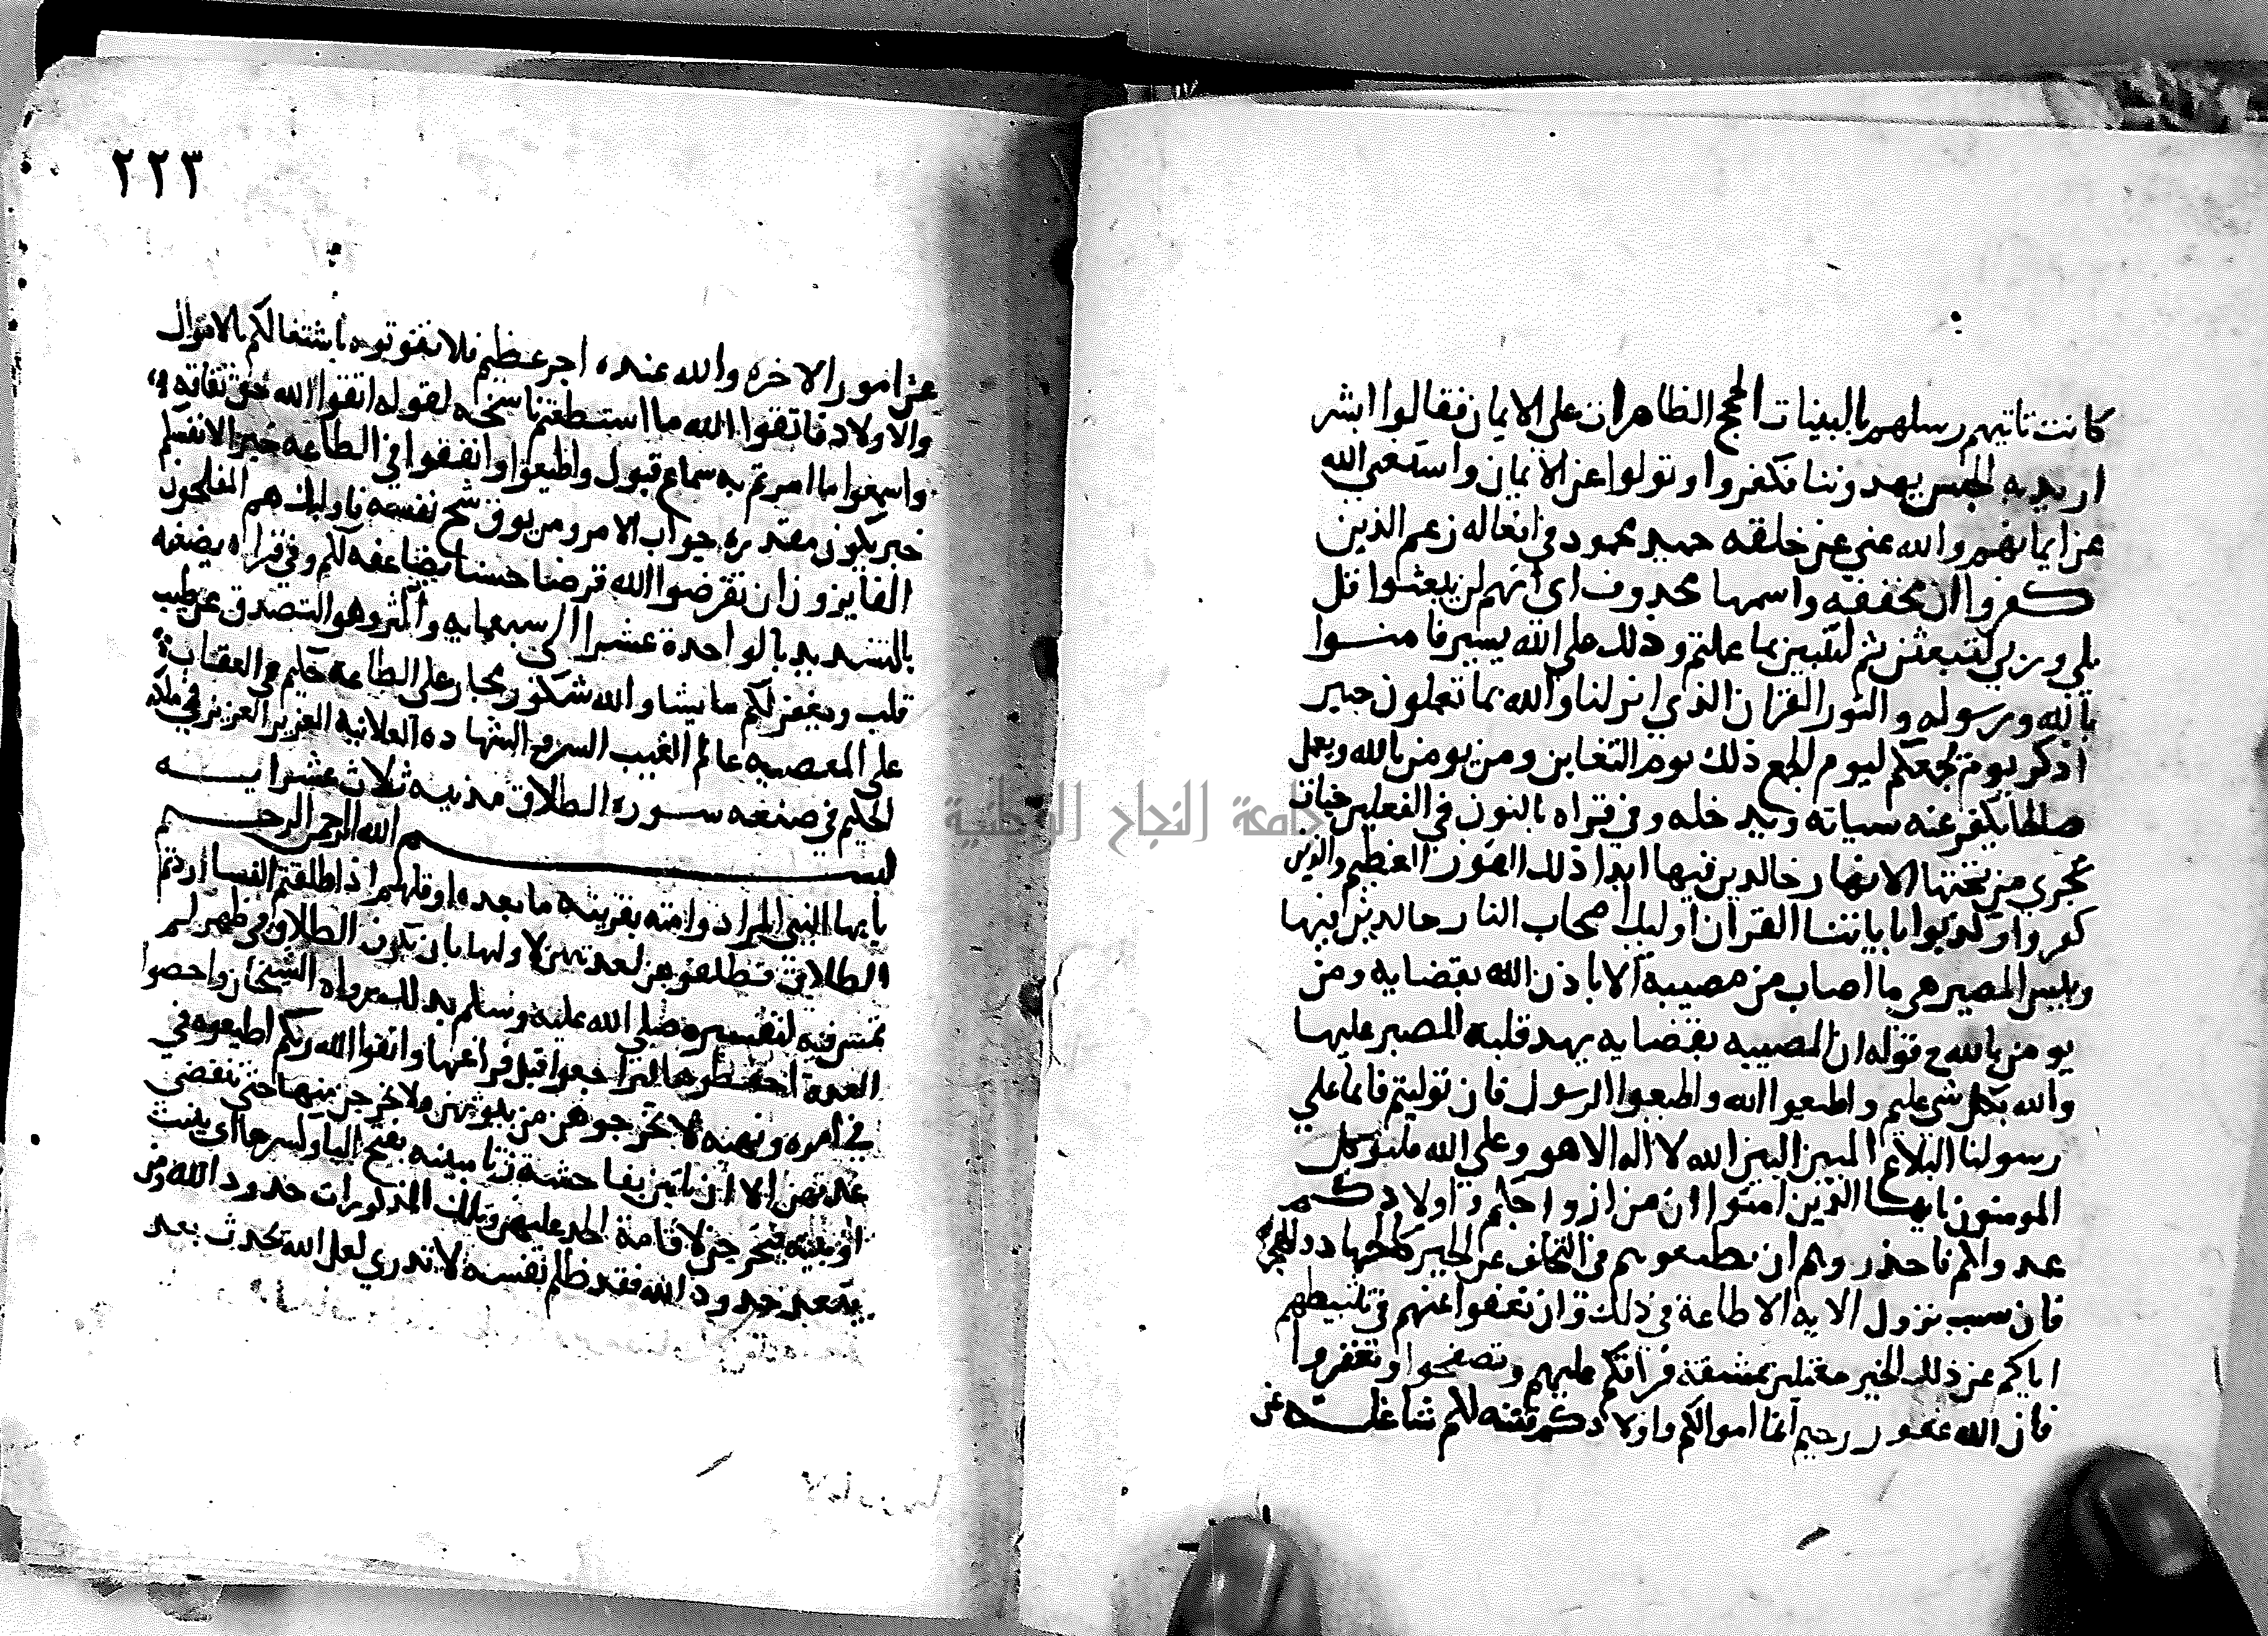 كانت تاتيهم رسلهم بالبينات الحجج الظاهرات على الايمان فقالوا ابشر
اريد به الجنس يهدوننا فكفروا وتولوا عن الايمان واستغنى الله
عن ايمانهم والله غني عن خلقه حميد محمود في افعاله زعم الذين
كفروا ان مخففه واسمها محذوف اي انهم لن يبعثوا قل
بلى وربي لتبعثن ثم لتنبين بما عملتم وذلك على الله يسير فامنوا
بالله ورسوله والنور القران الذي انزلنا والله بما تعملون خبير
اذكر يوم يجمعكم ليوم الجمع ذلك يوم التغابن ومن يومن بالله ويعمل
صالحا يكفر عنه سياته ويدخله وفي قراه بالنون في الفعلين جنات
تجري من تحتها الانهار خالدين فيها ابدا ذلك الفوز العظيم والذين
كفروا وكذبوا باياتنا القران اوليك اصحاب النار خالدين فيها
وبيس المصير هي ما اصاب من مصيبة الا باذن الله بقضايه ومن
يومن بالله ع قوله ان المصيبه بقضايه يهد قلبه للصبر عليها
والله بكل شي عليم واطيعوا الله واطيعوا الرسول فان توليتم فانما على
رسولنا البلاغ المبين البين الله لا اله الا هو وعلى الله فليتوكل
المومنون يايها الذين امنوا ان من ازواجكم واولادكم
عدوا لكم فاحذروهم ان تطيعوهم في التخلف عن الخير كالجهاد والهجرة
فان سبب نزول الايه الاطاعة في ذلك وان تعفوا عنهم في تثبيطهم
اياكم عن ذلك الخير معتلين بمشقة فراقكم عليهم وتصفحوا وتغفروا
فان الله غفور رحيم انما اموالكم واولادكم فتنه لكم شاغلة عن
٢٢٣
عن امور الاخره والله عنده اجر عظيم فلا تفوتوه باشتغالكم بالاموال
والاولاد فاتقوا الله ما استطعتم ناسخه لقوله اتقوا الله حق تقاته
واسمعوا ما امرتم به سماع قبول واطيعوا وانفقوا في الطاعه خيرا لانفسكم
خبر يكون مقدره جواب الامر ومن يوق شح نفسه فاوليك هم المفلحون
الفايزون ان تقرضوا الله قرضا حسنا يضاعفه لكم وفي قراه يضعفه
بالتشديد بالواحدة عشرا الى سبعمايه واكثر وهو التصدق عن طيب
قلب ويغفر لكم ما يشا والله شكور مجاز على الطاعة حليم في العقاب
على المعصيه عالم الغيب السر والشهاده العلانيه العزيز في ملكه
الحكيم في صنعه سورة الطلاق مدنيه ثلاث عشرايه
بسم الله الرحمن الرحيم
يايها النبي المراد وامته بقرينة ما بعده او قل لهم اذا طلقتم النسا اردتم
الطلاق فطلقوهن لعدتهن لاولها بان يكون الطلاق في طهر لم
تمس فيه لتفسيره صلى الله عليه وسلم بذلك رواه الشيخان واحصوا
العدة احفظوها لتراجعوا قبل فراغها واتقوا الله ربكم اطيعوه في
في امره ونهيه لا تخرجوهن من بيوتهن ولا يخرجن منها حتى تنقضي
عدتهن الا ان ياتين بفاحشة زنا مبينه بفتح اليا وكسرها اي بينت
او بينه فيخرجن لاقامة الحد عليهن وتلك المذكورات حدود الله ومن
يتعد حدود الله فقد ظلم نفسه لا تدري لعل الله يحدث بعد
جامعة النجاح الوطنية